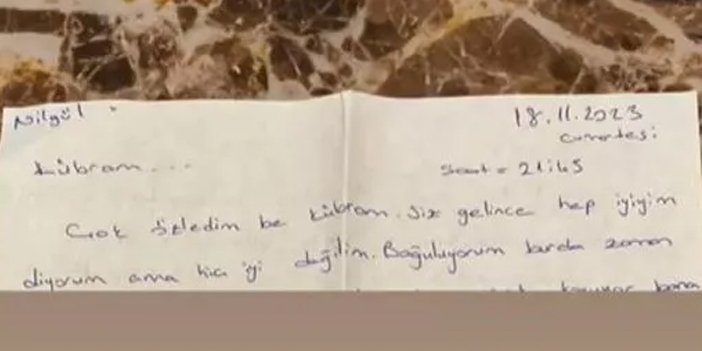 Nilgül
18.11.2023
Cumartesi
Kübram...
Saat = 21:45
Çok özledim be Kübram. Siz gelince hep iyiyim
diyorum ama hiç iyi değilim. Boğuluyorum burda zaman
bana